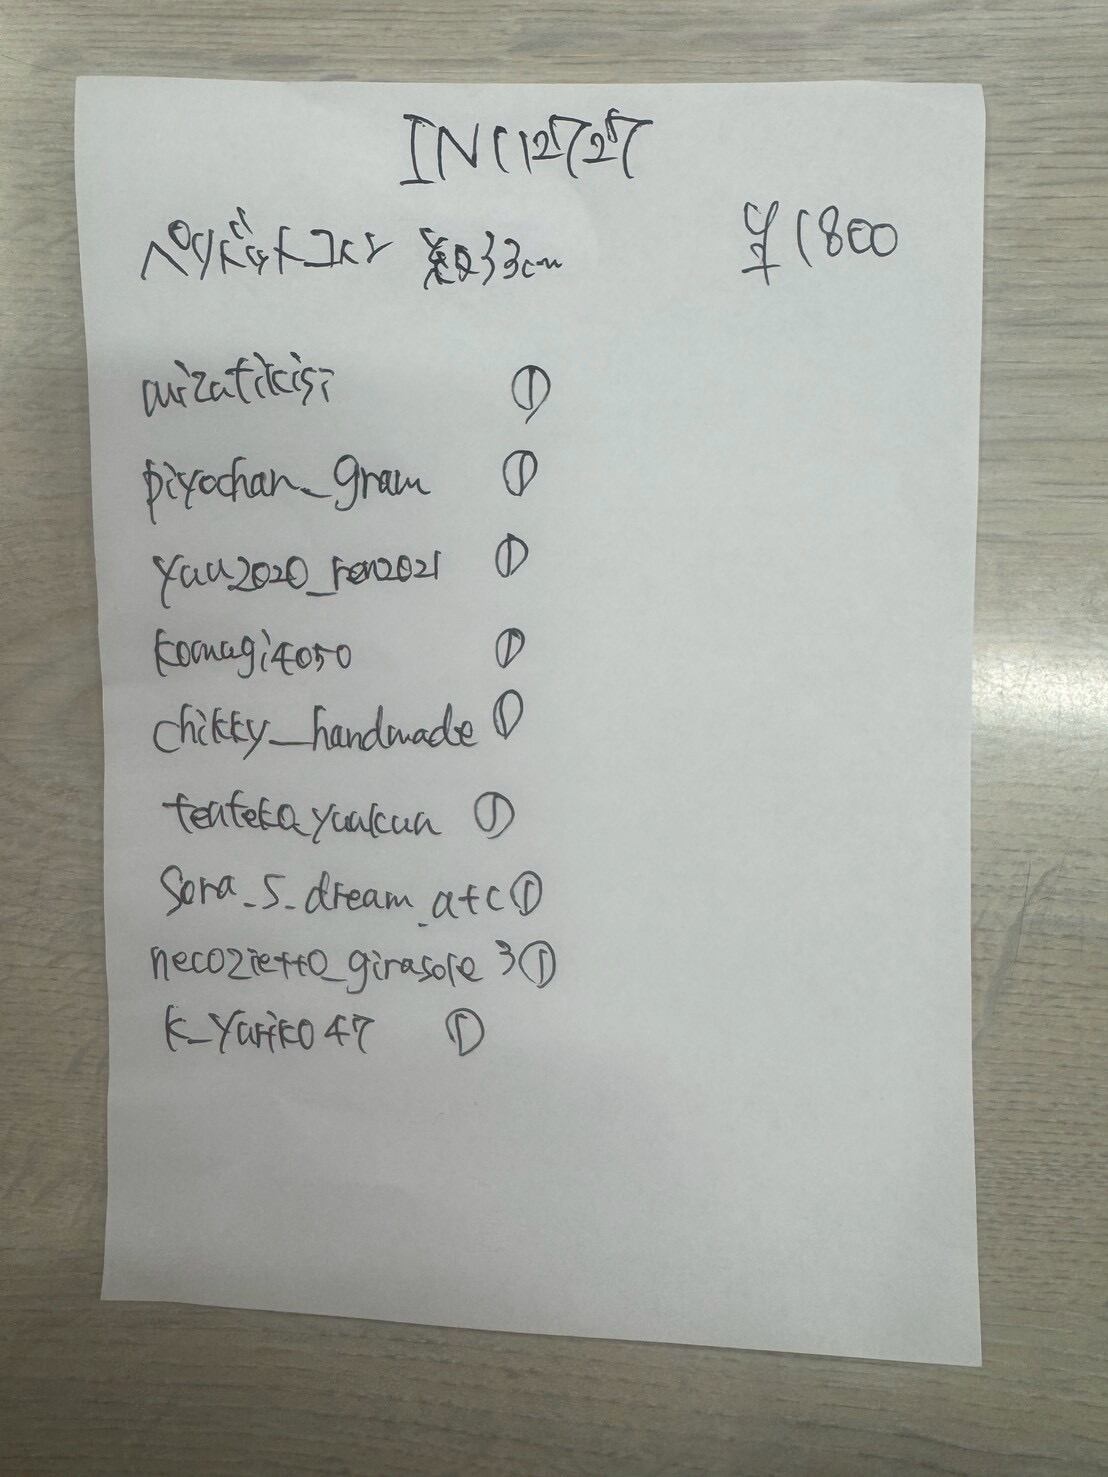 INC12727
ペリドットコイン 約33cm ¥1800
mizutikisi ①
piyochan_gram ①
yuu2020_ren2021 ①
komugi4050 ①
chikky_handmade ①
tenteko_yuukun ①
Sora_s_dream_atc ①
necozietto_girasole3 ①
k_yuriko47 ①